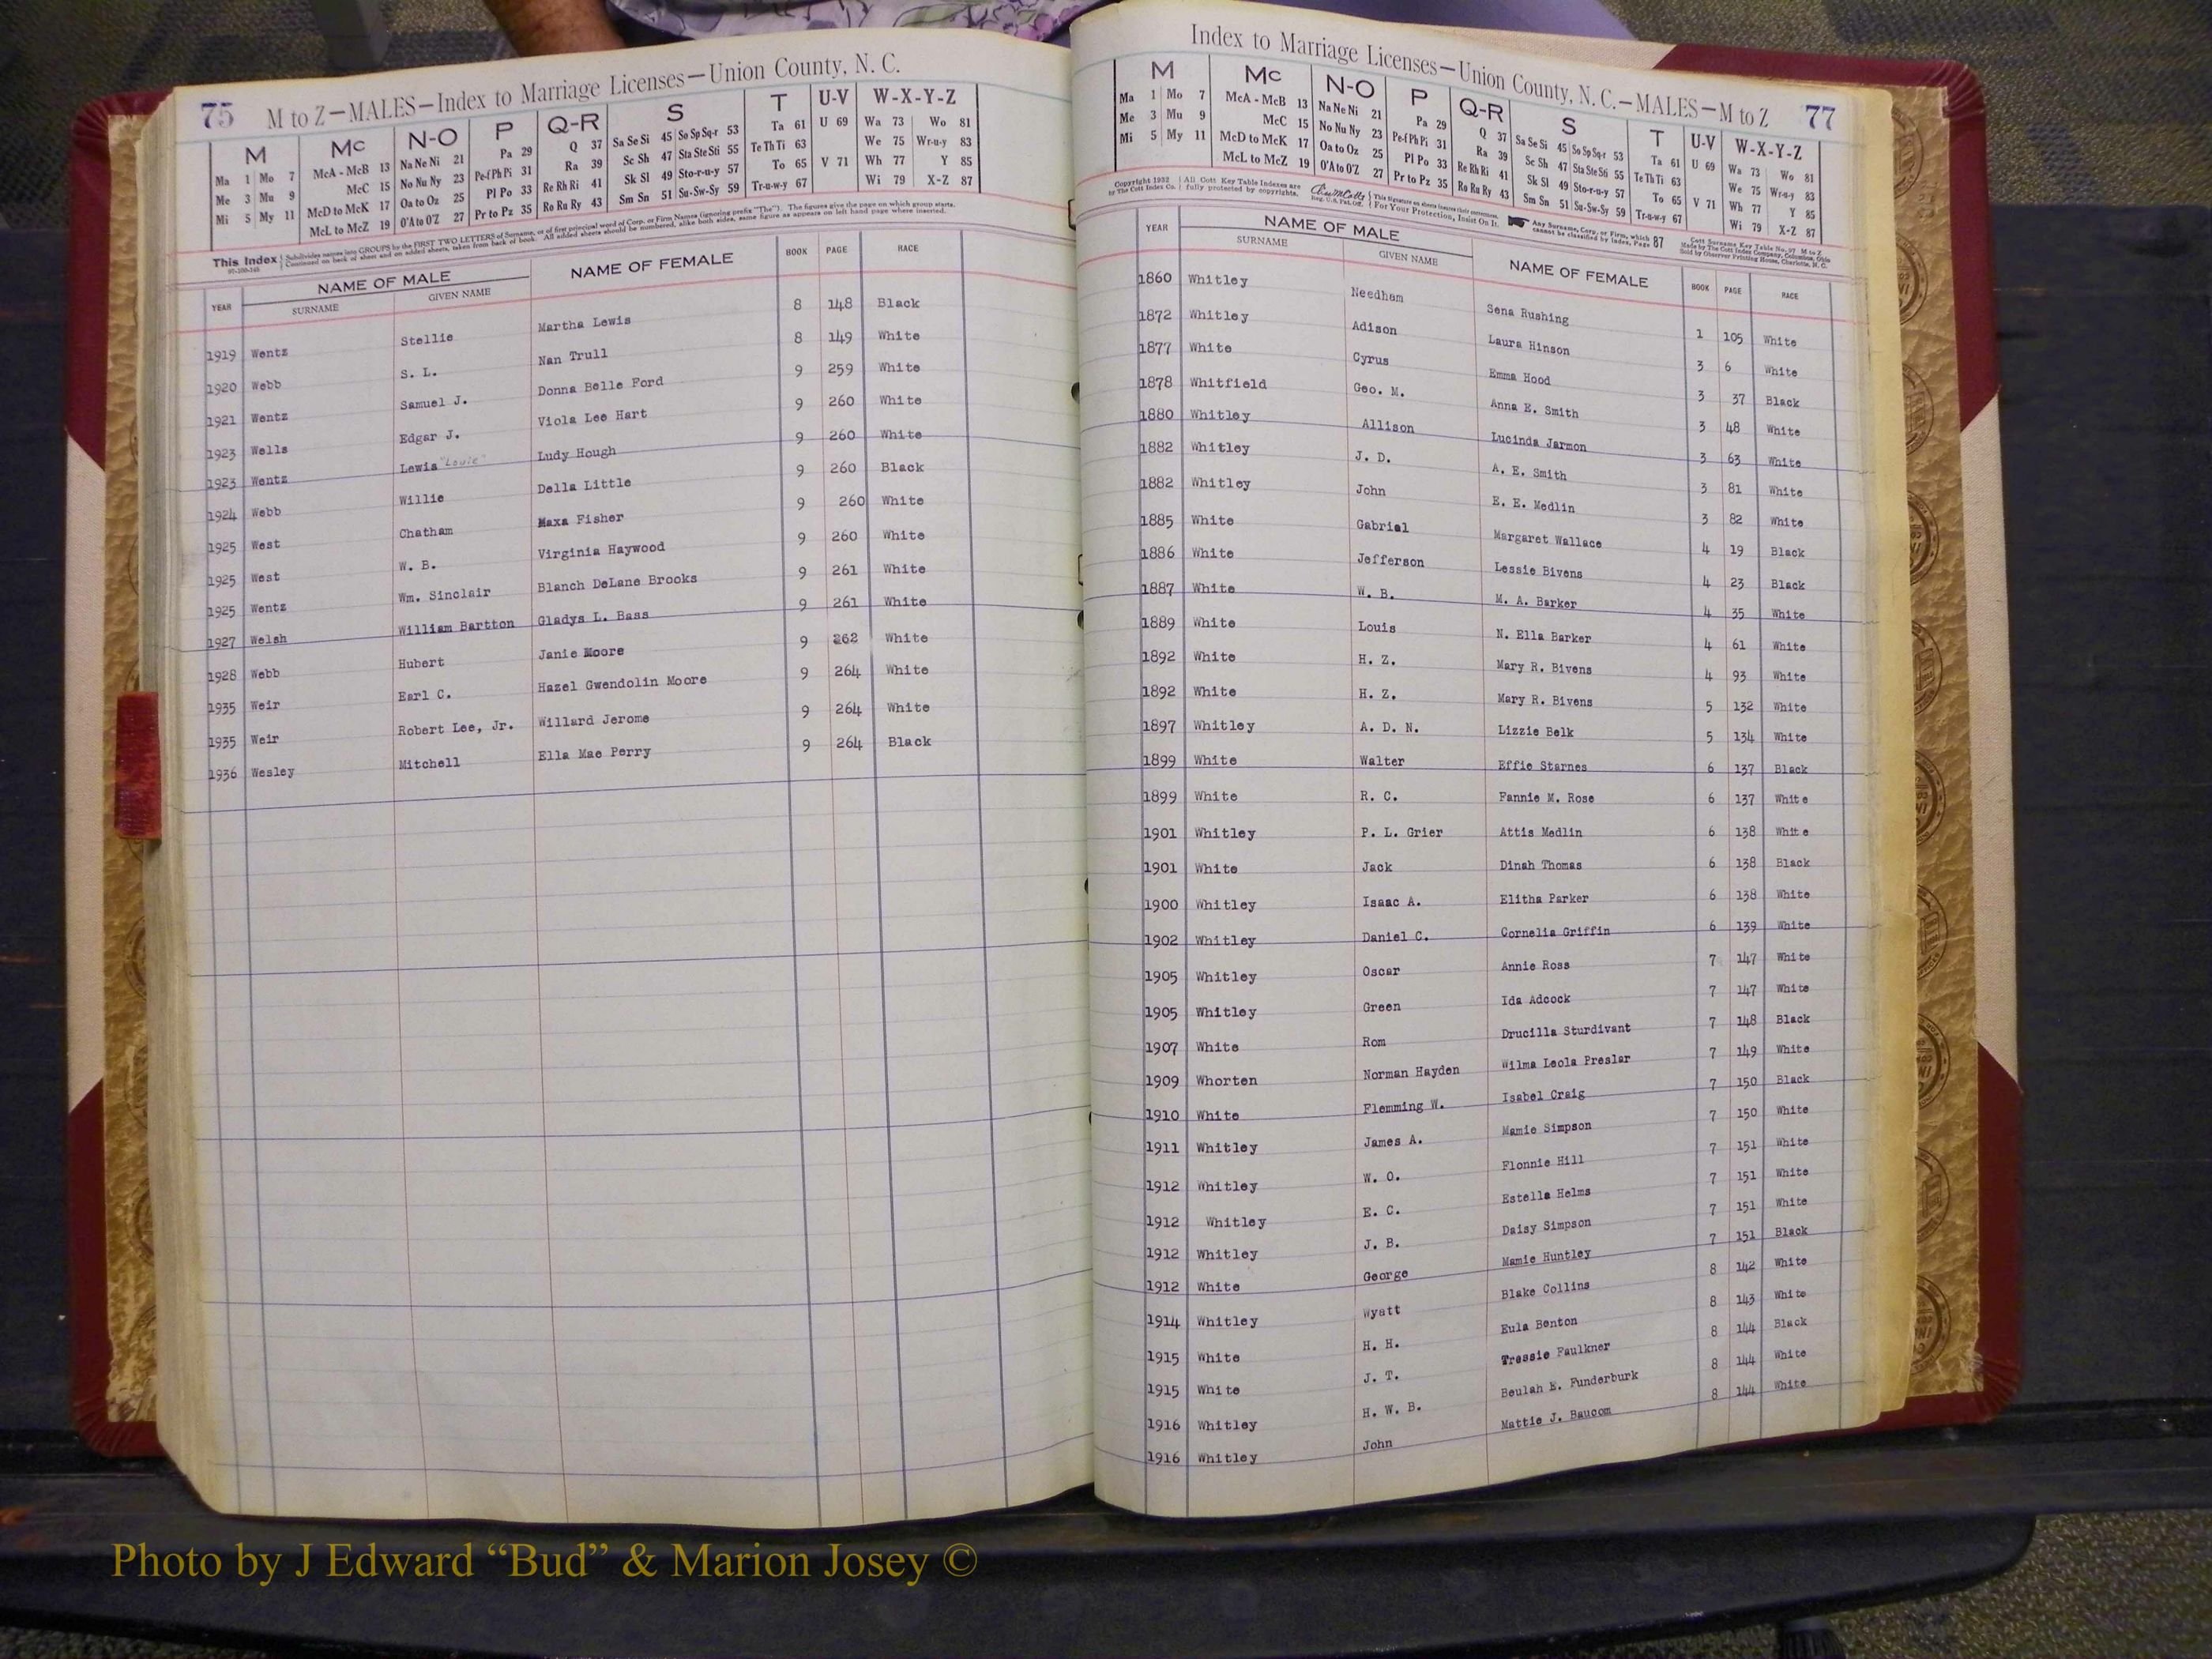 75 M to Z—MALES—Index to Marriage Licenses—Union County, N. C.
M Mc N-O P Q-R S T U-V W-X-Y-Z
Ma 1 Mo 7 McA - McB 13 Na Ne Ni 21 Pa 29 Q 37 Sa Se Si 45 So Sp Sq-r 53 Ta 61 U 69 Wa 73 Wo 81
Me 3 Mu 9 McC 15 No Nu Ny 23 Pe-f Ph Pi 31 Ra 39 Sc Sh 47 Sta Ste Sti 55 Te Th Ti 63 We 75 Wr-u-y 83
Mi 5 My 11 McD to McK 17 Oa to Oz 25 Pl Po 33 Re Rh Ri 41 Sk Sl 49 Sto-r-u-y 57 To 65 V 71 Wh 77 Y 85
McL to McZ 19 O'A to O'Z 27 Pr to Pz 35 Ro Ru Ry 43 Sm Sn 51 Su-Sw-Sy 59 Tr-u-w-y 67 Wi 79 X-Z 87
This Index Subdivides names into GROUPS by the FIRST TWO LETTERS of Surname, or of first principal word of Corp. or Firm Names (ignoring prefix "The"). The figures give the page on which group starts.
Continued on back of sheet and on added sheets, taken from back of book. All added sheets should be numbered, alike both sides, same figure as appears on left hand page where inserted.
YEAR NAME OF MALE NAME OF FEMALE BOOK PAGE RACE
SURNAME GIVEN NAME
1919 Wentz Stellie Martha Lewis 8 148 Black
1920 Webb S. L. Nan Trull 8 149 White
1921 Wentz Samuel J. Donna Belle Ford 9 259 White
1923 Wells Edgar J. Viola Lee Hart 9 260 White
1923 Wentz Lewis "Louie" Ludy Hough 9 260 White
1924 Webb Willie Della Little 9 260 Black
1925 West Chatham Maxa Fisher 9 260 White
1925 West W. B. Virginia Haywood 9 260 White
1925 Wentz Wm. Sinclair Blanch DeLane Brooks 9 261 White
1927 Welsh William Bartton Gladys L. Bass 9 261 White
1928 Webb Hubert Janie Moore 9 262 White
1935 Weir Earl C. Hazel Gwendolin Moore 9 264 White
1935 Weir Robert Lee, Jr. Willard Jerome 9 264 White
1936 Wesley Mitchell Ella Mae Perry 9 264 Black
Index to Marriage Licenses—Union County, N. C.—MALES—M to Z 77
M Mc N-O P Q-R S T U-V W-X-Y-Z
Ma 1 Mo 7 McA - McB 13 Na Ne Ni 21 Pa 29 Q 37 Sa Se Si 45 So Sp Sq-r 53 Ta 61 U 69 Wa 73 Wo 81
Me 3 Mu 9 McC 15 No Nu Ny 23 Pe-f Ph Pi 31 Ra 39 Sc Sh 47 Sta Ste Sti 55 Te Th Ti 63 We 75 Wr-u-y 83
Mi 5 My 11 McD to McK 17 Oa to Oz 25 Pl Po 33 Re Rh Ri 41 Sk Sl 49 Sto-r-u-y 57 To 65 V 71 Wh 77 Y 85
McL to McZ 19 O'A to O'Z 27 Pr to Pz 35 Ro Ru Ry 43 Sm Sn 51 Su-Sw-Sy 59 Tr-u-w-y 67 Wi 79 X-Z 87
Copyright 1932 by The Cott Index Co. All Cott Key Table Indexes are fully protected by copyrights. Reg. U.S. Pat. Off. This signature on sheets insures their correctness. For Your Protection, Insist On It. Any Surname, Corp. or Firm, which cannot be classified by Index, Page 87
Cott Surname Key Table No. 97 M to Z Made by The Cott Index Company, Columbus, Ohio Sold by Observer Printing House, Charlotte, N. C.
YEAR NAME OF MALE NAME OF FEMALE BOOK PAGE RACE
SURNAME GIVEN NAME
1860 Whitley Needham Sena Rushing 1 105 White
1872 Whitley Adison Laura Hinson 3 6 White
1877 White Cyrus Emma Hood 3 37 Black
1878 Whitfield Geo. M. Anna E. Smith 3 48 White
1880 Whitley Allison Lucinda Jarmon 3 63 White
1882 Whitley J. D. A. E. Smith 3 81 White
1882 Whitley John E. E. Medlin 3 82 White
1885 White Gabriel Margaret Wallace 4 19 Black
1886 White Jefferson Lessie Bivens 4 23 Black
1887 White W. B. M. A. Barker 4 35 White
1889 White Louis N. Ella Barker 4 61 White
1892 White H. Z. Mary R. Bivens 4 93 White
1892 White H. Z. Mary R. Bivens 5 132 White
1897 Whitley A. D. N. Lizzie Belk 5 134 White
1899 White Walter Effie Starnes 6 137 Black
1899 White R. C. Fannie M. Rose 6 137 White
1901 Whitley P. L. Grier Attis Medlin 6 138 White
1901 White Jack Dinah Thomas 6 138 Black
1900 Whitley Isaac A. Elitha Parker 6 138 White
1902 Whitley Daniel C. Cornelia Griffin 6 139 White
1905 Whitley Oscar Annie Ross 7 147 White
1905 Whitley Green Ida Adcock 7 147 White
1907 White Rom Drucilla Sturdivant 7 148 Black
1909 Whorten Norman Hayden Wilma Leola Presler 7 149 White
1910 White Flemming W. Isabel Craig 7 150 Black
1911 Whitley James A. Mamie Simpson 7 150 White
1912 Whitley W. O. Flonnie Hill 7 151 White
1912 Whitley E. C. Estella Helms 7 151 White
1912 Whitley J. B. Daisy Simpson 7 151 White
1912 White George Mamie Huntley 7 151 Black
1914 Whitley Wyatt Blake Collins 8 142 White
1915 White H. H. Eula Benton 8 143 White
1915 White J. T. Tressie Faulkner 8 144 Black
1916 Whitley H. W. B. Beulah E. Funderburk 8 144 White
1916 Whitley John Mattie J. Baucom 8 144 White
Photo by J Edward “Bud” & Marion Josey ©